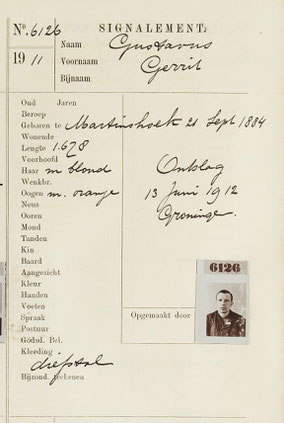 No. 6126 SIGNALEMENT.
1911 Naam Gustavus
Voornaam Gerrit
Bijnaam
Oud Jaren
Beroep
Geboren te Martinshoek 21 Sept 1884
Wonende
Lengte 1.678
Voorhoofd
Haar m blond Ontslag
Wenkbr.
Oogen m. orange 13 Juni 1912
Neus
Ooren Groningen.
Mond
Tanden
Kin
Baard
Aangezicht
Kleur
Handen
Voeten
Spraak
Postuur
Godsd. Bel.
Kleeding
diefstal
Bijzond. teekenen
6126
Opgemaakt door